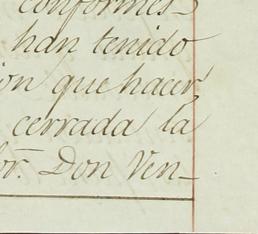 conformes
han tenido
ion que hacer,
cerrada la
or. Don Ven-